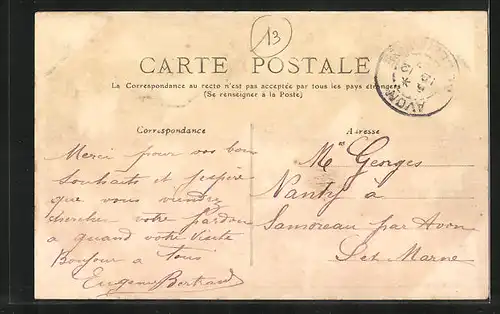 13
CARTE POSTALE
La Correspondance au recto n'est pas acceptée par tous les pays étrangers
(Se renseigner à la Poste)
AVON
Correspondance
Adresse
Merci pour vos bons
souhaits et j'espère
que vous viendrez
chercher votre pardon
a quand votre visite
Bonjour a tous
Eugene Bertrand
Mr Georges
Nanty à
Samoreau par Avon
Set Marne